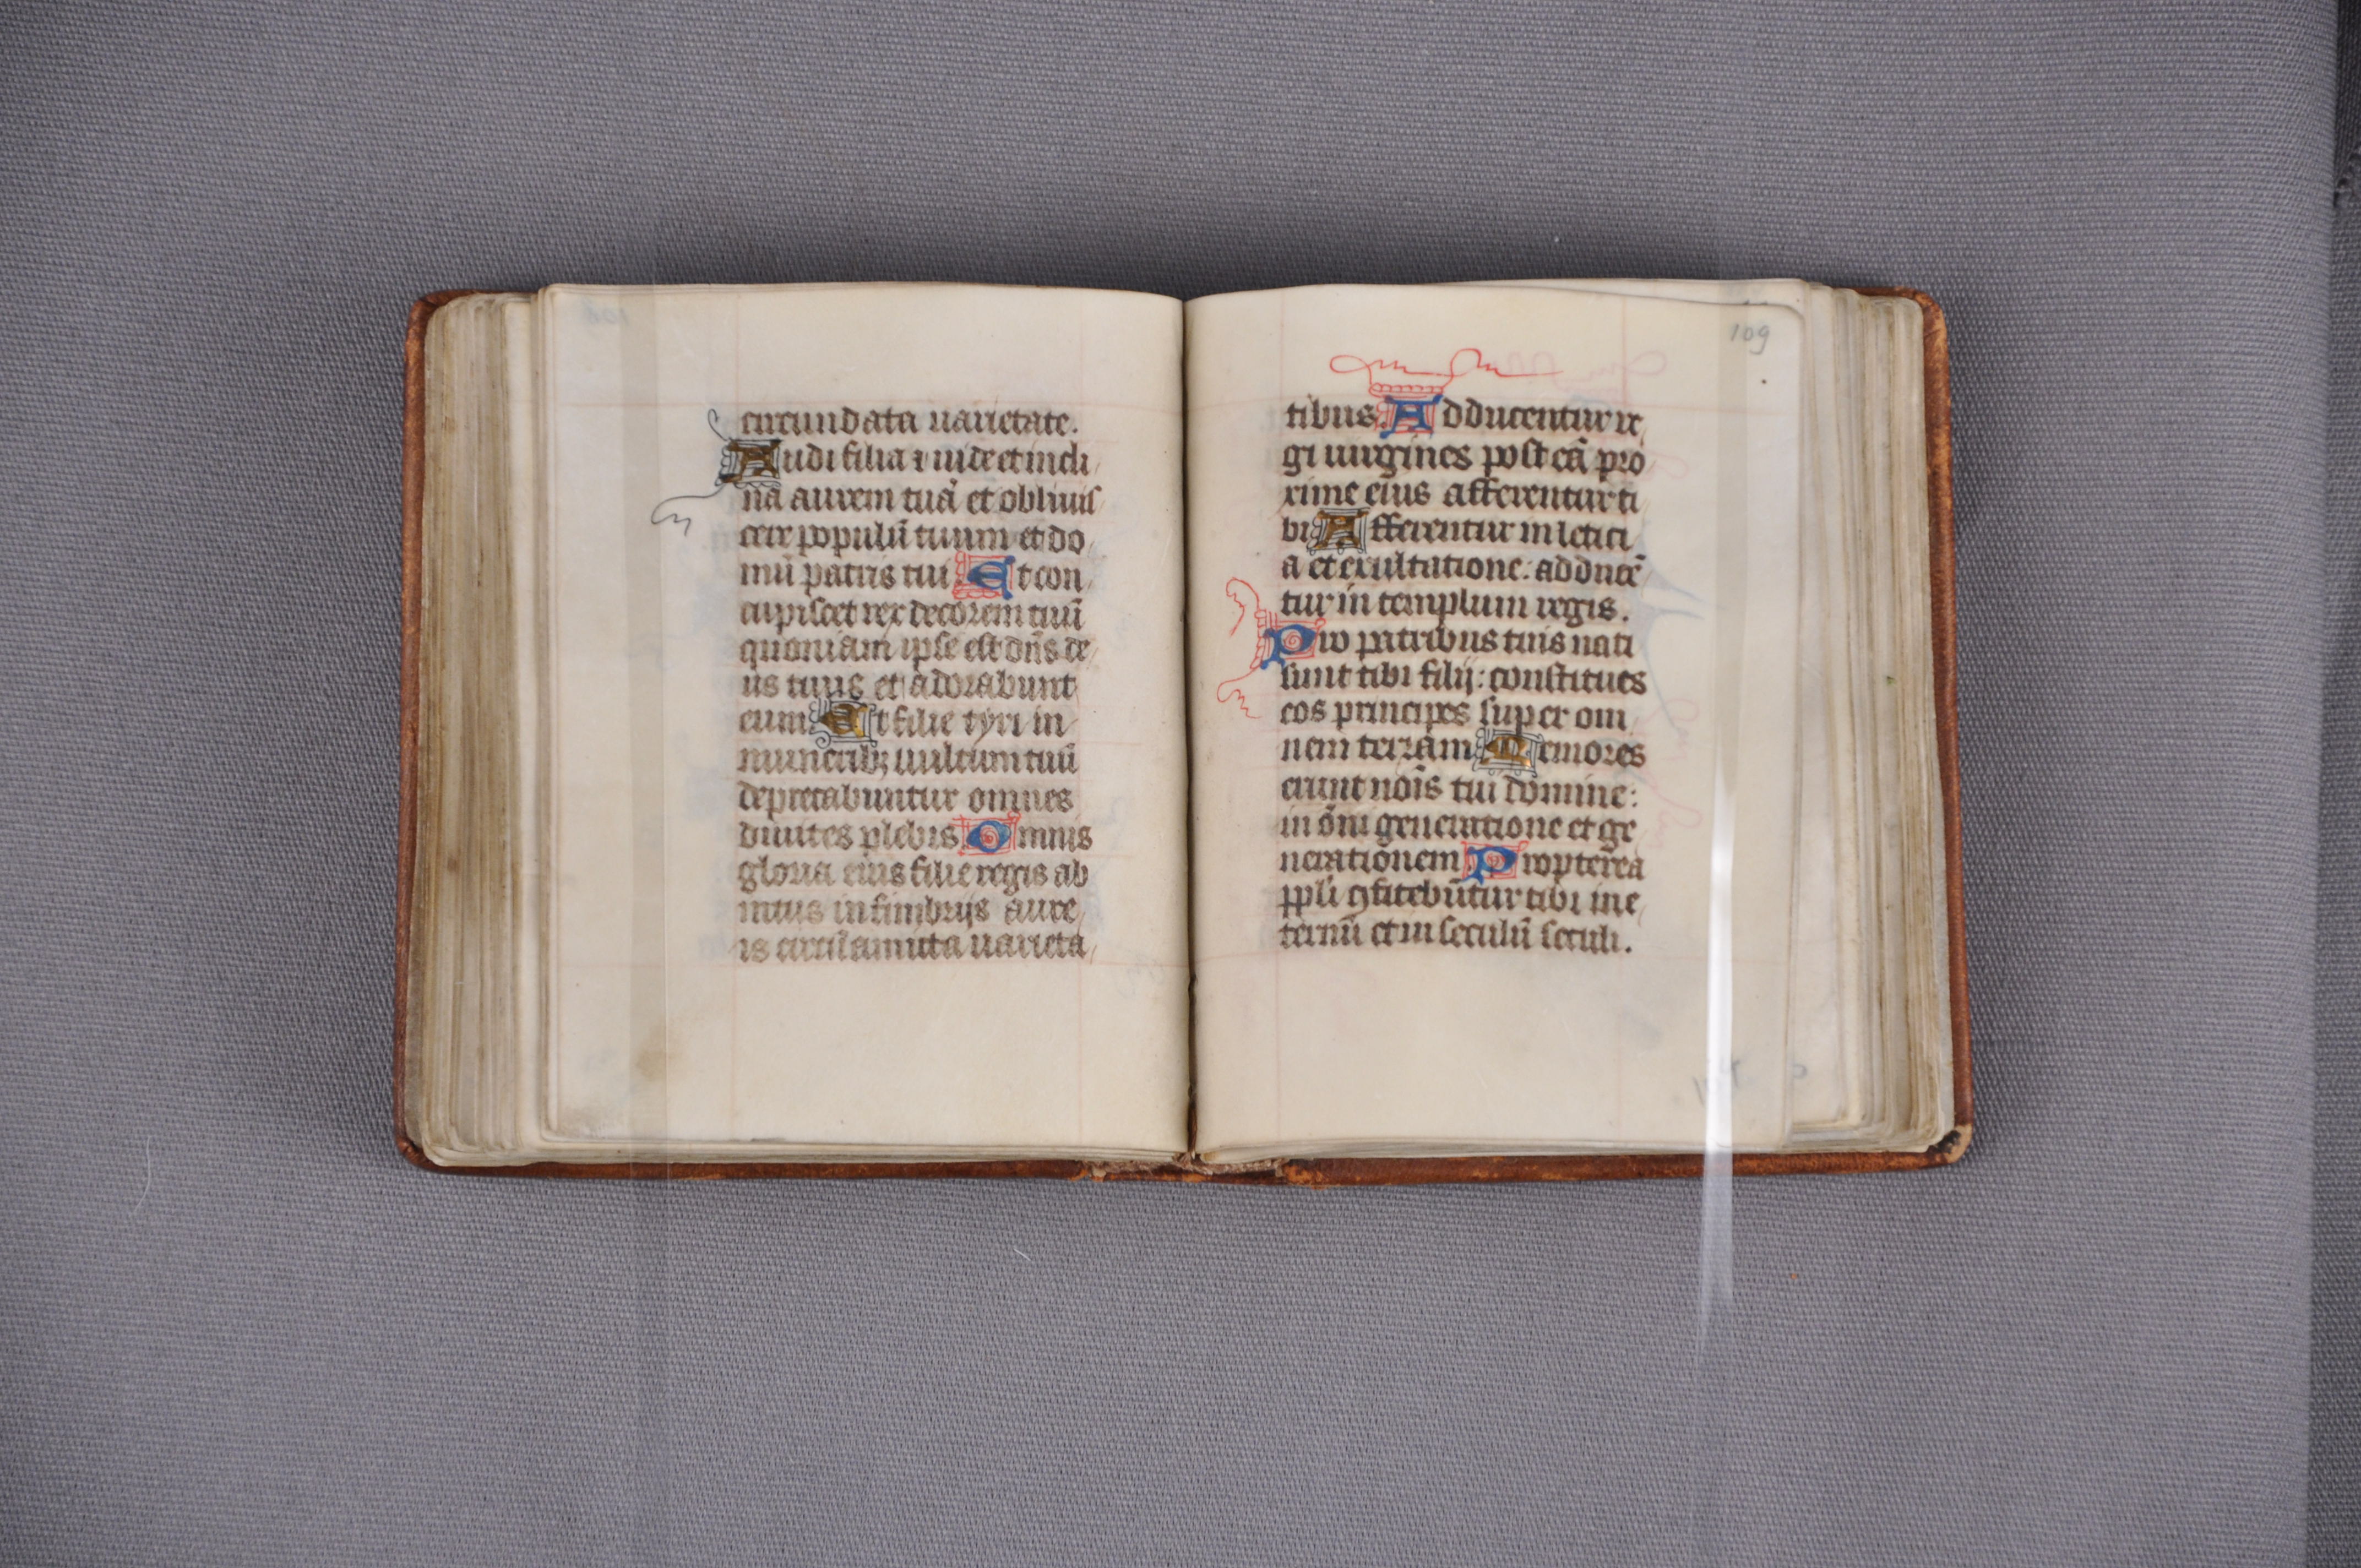 circundata uarietate.
Audi filia ⁊ uide et incli
na aurem tuā et obliuis
cere populū tuum et do
mū patris tui Et con
cupiscet rex decorem tuū
quoniam ipse est dn̄s de
us tuus et adorabunt
eum Et filie tyri in
munerib; uultum tuū
deprecabuntur omnes
diuites plebis Omnis
gloria eius filie regis ab
intus in fimbrijs aure
is circūamicta uarieta
109
tibus Adducentur re
gi uirgines post eā pro
xime eius afferentur ti
bi Afferentur in letici
a et exultatione: adducē
tur in templum regis.
Pro patribus tuis nati
sunt tibi filij: constitues
eos principes super om
nem terram Memores
erunt nōis tui domine:
in ōni generatione et ge
nerationem Propterea
ppl̄i ꝯfitebūtur tibi in e
ternū et in seculū seculi.